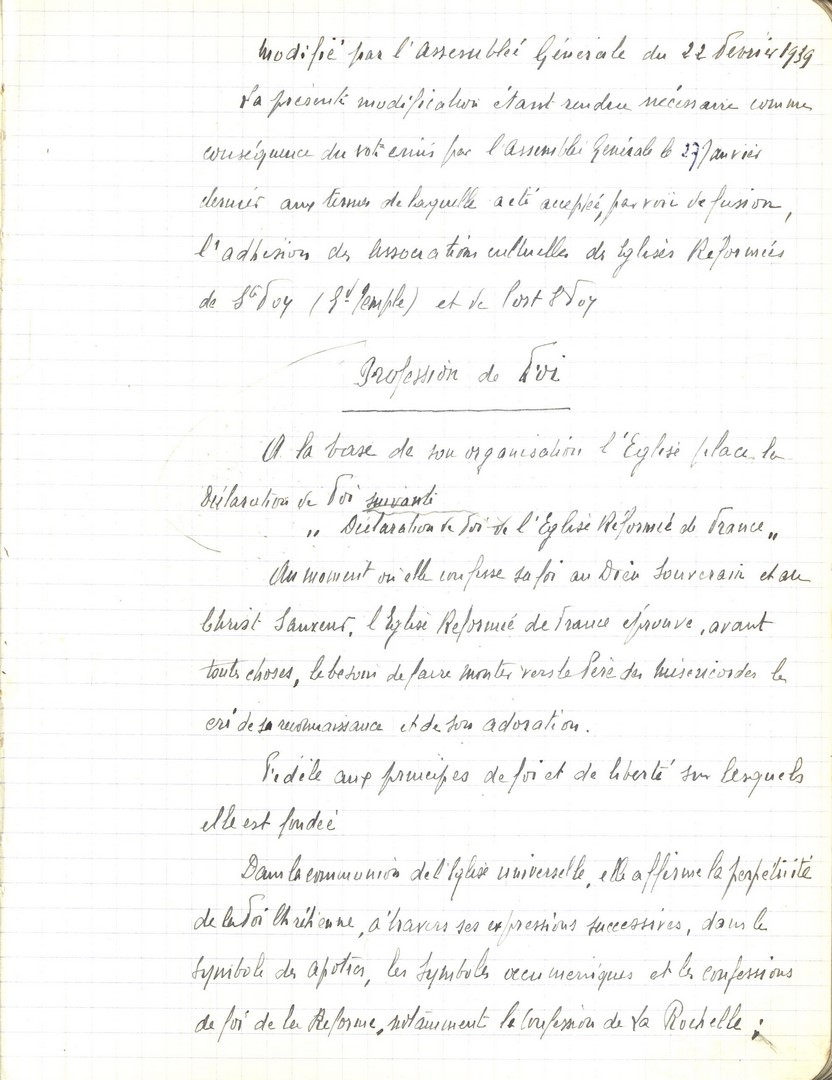 Modifié par l'Assemblée Générale du 22 Février 1939
La présente modification étant rendue nécessaire comme
conséquence du vote émis par l'Assemblée Générale le 27 Janvier
dernier aux termes de laquelle a été acceptée, par voie de fusion,
l'adhésion des Associations cultuelles des Eglises Réformées
de Ste Foy (Gd Temple) et de Port Ste Foy
Profession de Foi
A la base de son organisation l'Eglise place la
Déclaration de Foi suivante
„ Déclaration de Foi de l'Eglise Réformée de France „
Au moment où elle confesse sa foi au Dieu Souverain et au
Christ Sauveur, l'Eglise Réformée de France éprouve, avant
toute choses, le besoin de faire monter vers le Père des Miséricordes le
cri de sa reconnaissance et de son adoration.
Fidèle aux principes de foi et de liberté sur lesquels
elle est fondée
Dans la communion de l'Eglise universelle, elle affirme la perpétuité
de la Foi Chrétienne, à travers ses expressions successives, dans le
Symbole des Apôtres, les Symboles œcuméniques et les confessions
de foi de la Réforme, notamment la Confession de La Rochelle ;